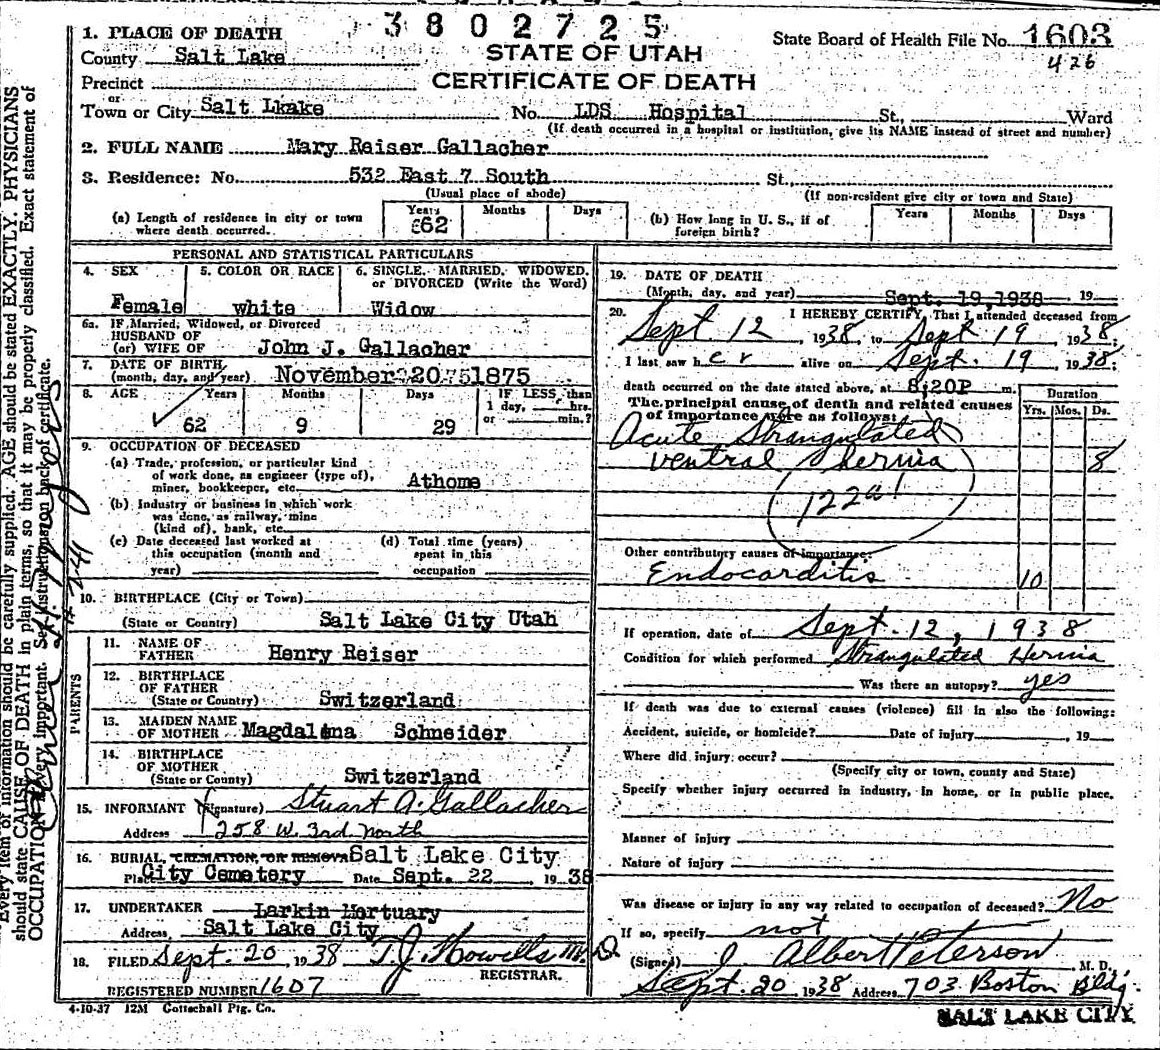 3802725
1. PLACE OF DEATH
STATE OF UTAH
State Board of Health File No. 1603
County Salt Lake
426
Precinct
CERTIFICATE OF DEATH
or
Town or City Salt Lkake No. LDS Hospital St., Ward
(If death occurred in a hospital or institution, give its NAME instead of street and number)
2. FULL NAME Mary Reiser Gallacher
3. Residence: No. 532 East 7 South St.,
(Usual place of abode) (If non-resident give city or town and State)
(a) Length of residence in city or town where death occurred. Years 62 Months Days
(b) How long in U. S., if of foreign birth? Years Months Days
PERSONAL AND STATISTICAL PARTICULARS
4. SEX Female
5. COLOR OR RACE white
6. SINGLE, MARRIED, WIDOWED, or DIVORCED (Write the Word) Widow
6a. IF Married, Widowed, or Divorced
HUSBAND OF
(or) WIFE OF John J. Gallacher
7. DATE OF BIRTH
(month, day, and year) November 20 1875
8. AGE Years Months Days IF LESS than
1 day, hrs.
or min.?
62 9 29
9. OCCUPATION OF DECEASED
(a) Trade, profession, or particular kind
of work done, as engineer (type of),
miner, bookkeeper, etc. Athome
(b) Industry or business in which work
was done, as railway, mine
(kind of), bank, etc.
(c) Date deceased last worked at
this occupation (month and
year)
(d) Total time (years)
spent in this
occupation
10. BIRTHPLACE (City or Town)
(State or Country) Salt Lake City Utah
PARENTS
11. NAME OF
FATHER Henry Reiser
12. BIRTHPLACE
OF FATHER
(State or Country) Switzerland
13. MAIDEN NAME
OF MOTHER Magdalena Schneider
14. BIRTHPLACE
OF MOTHER
(State or County) Switzerland
15. INFORMANT (Signature) Stuart A. Gallacher
Address 258 W. 3rd North
16. BURIAL, CREMATION, OR REMOVAL Salt Lake City
Place City Cemetery Date Sept. 22 1938
17. UNDERTAKER Larkin Mortuary
Address Salt Lake City
18. FILED Sept. 20, 1938 T. J. Howells M.D.
REGISTRAR.
REGISTERED NUMBER 1607
4-10-37 12M Gottschall Ptg. Co.
19. DATE OF DEATH
(Month, day, and year) Sept. 19, 1938 19
20. I HEREBY CERTIFY, That I attended deceased from
Sept. 12, 1938, to Sept 19 1938;
I last saw her alive on Sept. 19, 1938;
death occurred on the date stated above, at 8;20P m.
The principal cause of death and related causes
of importance were as follows:
Duration
Yrs. Mos. Ds.
Acute Strangulated
ventral hernia 8
122a1
Other contributory causes of importance:
Endocarditis 10
If operation, date of Sept. 12, 1938
Condition for which performed Strangulated Hernia
Was there an autopsy? yes
If death was due to external causes (violence) fill in also the following:
Accident, suicide, or homicide? Date of injury , 19
Where did injury occur?
(Specify city or town, county and State)
Specify whether injury occurred in industry, in home, or in public place.
Manner of injury
Nature of injury
Was disease or injury in any way related to occupation of deceased? No
If so, specify not
(Signed) J. Albert Peterson M. D.
Sept. 20, 1938 Address 703 Boston Bldg.
SALT LAKE CITY
Every item of information should be carefully supplied. AGE should be stated EXACTLY. PHYSICIANS
should state CAUSE OF DEATH in plain terms, so that it may be properly classified. Exact statement of
OCCUPATION is very important. See instructions on back of certificate.